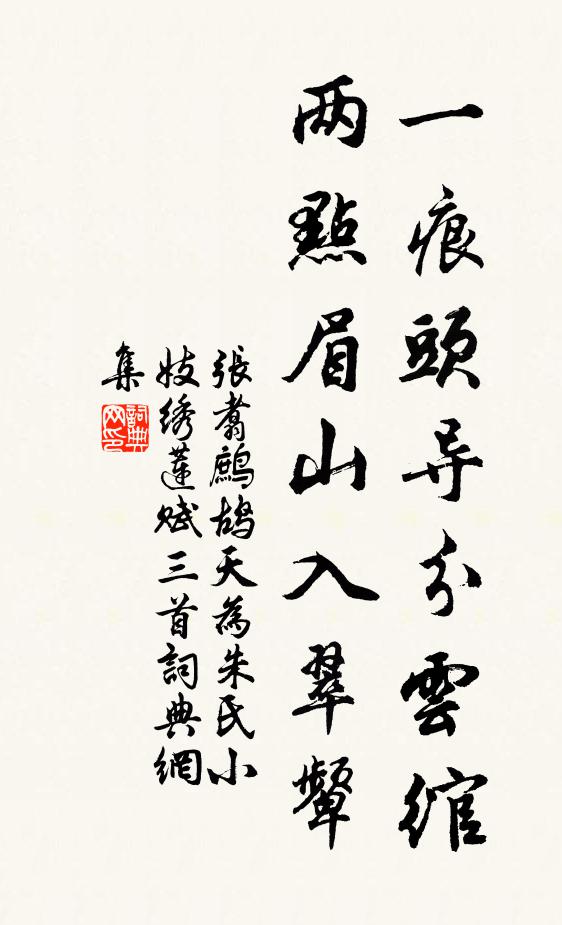 一痕頭导分雲綰
两點眉山入翠顰
張翥鷓鴣天為朱氏小
妓綉蓮賦三首詞典網
集
詞典
网印